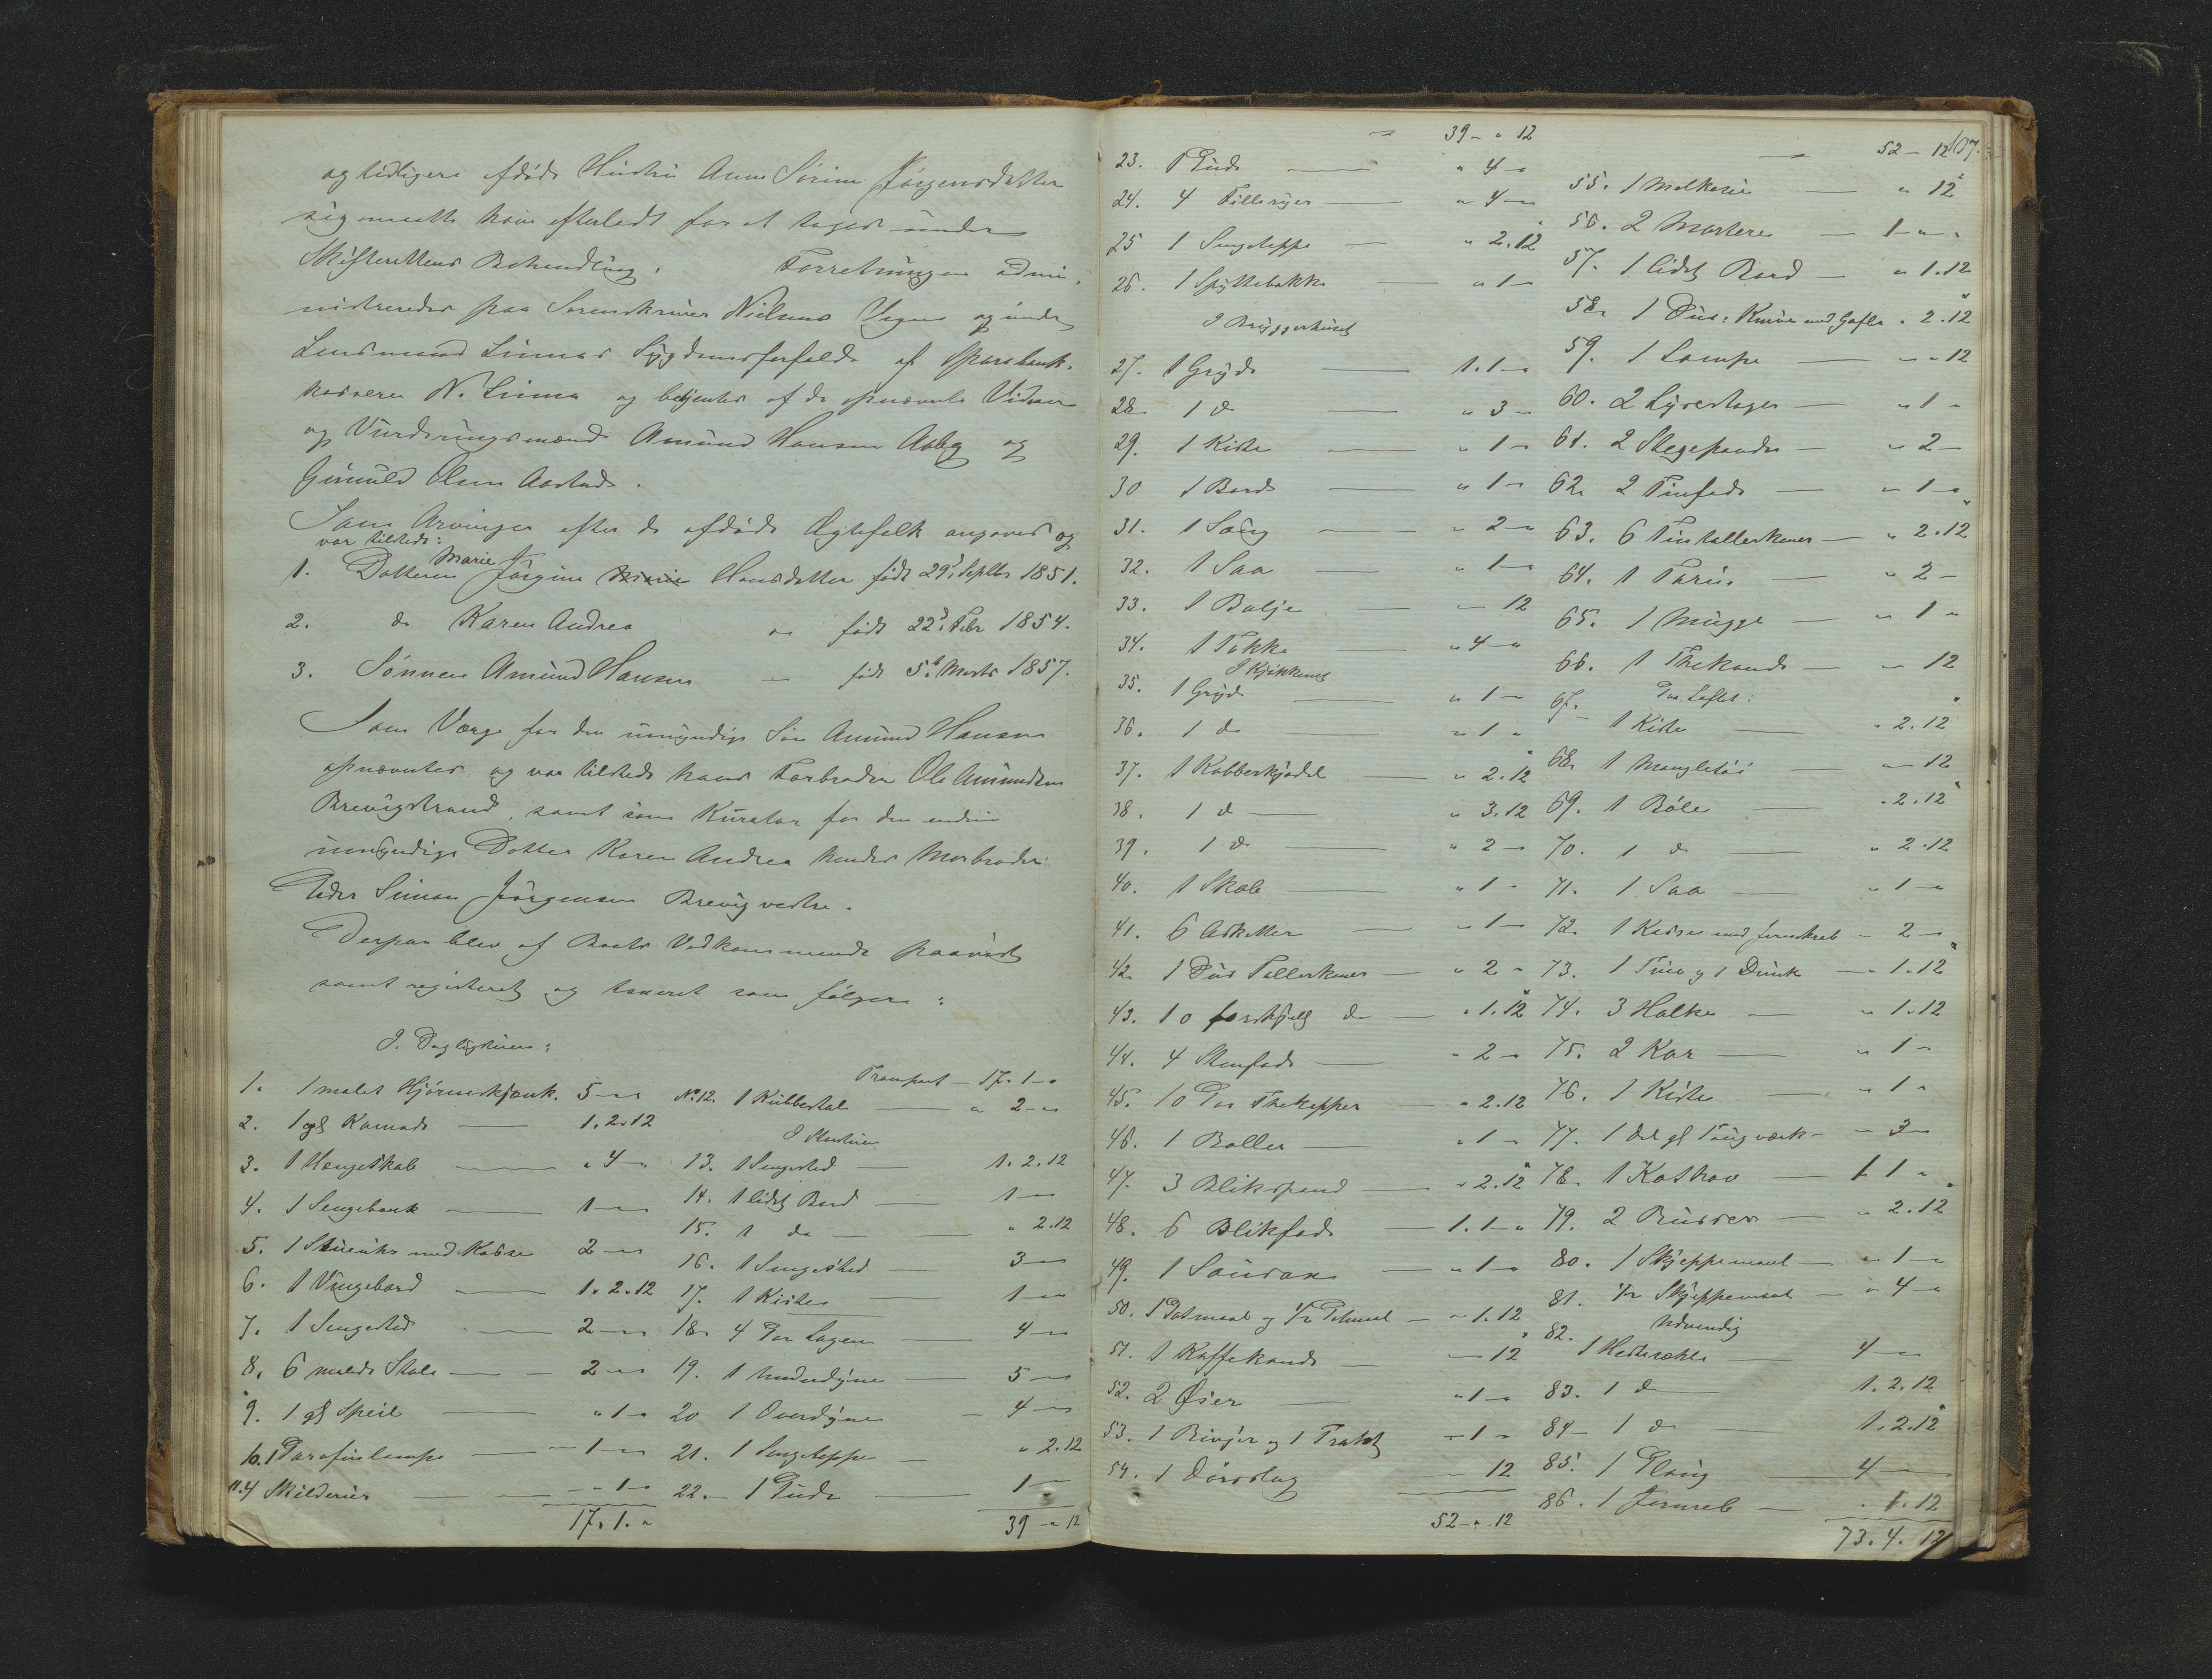 og tidligere afdøde Hustru Anne Sørine Jørgensdatter
sig maatte have efterladt for at tages under
Skifterettens Behandling. Forretningen admi-
nistreredes paa Sorenskriver Nielsens Vegne og under
Lensmand Linnes Sygdomsforfald af Sparebank-
kasserer N. Linne og betjentes af de opnævnte Vidner
og Vurderingsmænd Amund Hansen Aaby og
Gunuld Olsen Aastad.
Som Arvinger efter de afdøde Ægtefolk angaves og
var tilstede:
1. Datteren Marie Jørgine Marie Hansdatter født 29d Septbr 1851.
2. do Karen Andrea " født 22d Febr 1854.
3. Sønnen Amund Hansen — født 5te Marts 1857.
Som Værge for den umyndige Søn Amund Hansen
opnævntes og var tilstede hans Farbroder Ole Amundsen
Brevigstrand, samt som Kurator for den endnu
umyndige Datter Karen Andrea hendes Morbroder
Peder Simon Jørgensen Brevig vestre.
Derpaa blev af Boets Vedkommende paavist
samt registeret og taxeret som følger:
I Dagligstuen:
1. 1 malet Hjørneskjænk. 5 - "
2. 1 gl Komode — 1.2.12
3. 1 Hængeskab — " 4 - "
4. 1 Sengebænk — 1 - "
5. 1 Stueuhr med Kasse 2 - "
6. 1 Vingebord — 1.2.12
7. 1 Sengested — 2 - "
8. 6 malede Stole — 2 - "
9. 1 gl Speil — " 1 - "
10. 1 Parafinlampe — 1 - "
11. 4 Skilderier — " 1 -
17.1."
Transport — 17.1 - "
No 12. 1 Kubbestol — " 2 - "
13. 1 Sengested — 1.2.12
14. 1 lidet Bord — 1 - "
15. 1 do — " 2.12
16. 1 Sengested — 3 - "
17. 1 Kiste — 1 - "
18. 4 Par Lagen — 4 - "
19. 1 Underdyne — 5 - "
20 1 Overdyne — 4 - "
21. 1 Sengeteppe — " 2.12
22. 1 Pude — 1 -
39 - " 12
107.
— 39 - " 12
23. 1 Pude — " 4 - "
24. 4 Filleryer — " 4 - "
25 1 Sengeteppe — " 2.12
26. 1 Spyttebakke — " 1 -
I Bryggerhuset
27. 1 Gryde — 1.1 - "
28 1 do — " 3 -
29. 1 Kiste — " 1 -
30 1 Bord — " 1 -
31. 1 Sæng — " 2 - "
32. 1 Saa — " 1 - "
33. 1 Balje — " 12
34. 1 Takke — " 4 - "
I Kjøkkenet
35. 1 Gryde — " 1 -
36. 1 do — " 1 "
37. 1 Kobberkjedel — " 2.12
38. 1 do — " 3.12
39. 1 do — " 2 -
40. 1 Skab — " 1 -
41. 6 Asketter — " 1 -
42. 1 Dus Tallerkener — " 2 "
43. 10 forskjellg do — " 1.12
44. 4 Stenfade — " 2 - "
45. 10 Par Thekopper — " 2.12
46. 1 Boller — " 1 - "
47. 3 Blikspand — " 2.12
48. 6 Blikfade — 1.1 - "
49. 1 — " 1 - "
50. 1 Potmaal og 1/2 — " 1.12
51. 1 Kaffekande — " 12
52. 2 Øser — " 1 - "
53. 1 Rivjern og 1 Trakt — 1 "
54. 1 Dørslag — " 12
52 - " 12
— 52 - 12
55. 1 Melkesie — " 12
56. 2 Mortere — 1 - "
57. 1 lidet Bord — " 1.12
58. 1 Dus: Knive med Gafler " 2.12
59. 1 Lampe — " 12
60. 2 Lysestager — " 1 -
61. 2 Stegepander — " 2 -
62. 2 Tinfade — " 1 - "
63. 6 Tintallerkener — " 2.12
64. 1 Tærin — " 2 -
65. 1 Mugge — " 1 -
66. 1 Thekande — " 12
Paa Loftet:
67. 1 Kiste — " 2.12
68. 1 Mangletøi — " 12
69. 1 Bøle — " 2.12
70. 1 do — " 2.12
71. 1 Saa — " 1 - "
72. 1 Kasse med Jernskrab — 2 -
73. 1 Trau og 1 Dunk — " 1.12
74. 3 Holker — " 1.12
75. 2 Kar — " 1 -
76. 1 Kiste — " 1 -
77. 1 Del gl Tougværk — 3 -
78. 1 Kasthov — 1 1 "
79. 2 — " 2.12
80. 1 Skjeppemaal — " 1 - "
81. 1/2 Skjeppemaal — " 4 - "
Udvendig
82. 1 — 4 -
83. 1 do — 1.2.12
84 1 do — 1.2.12
85. 1 Ploug — 4 -
86. 1 Jernreb — " 1.12
73.4.12